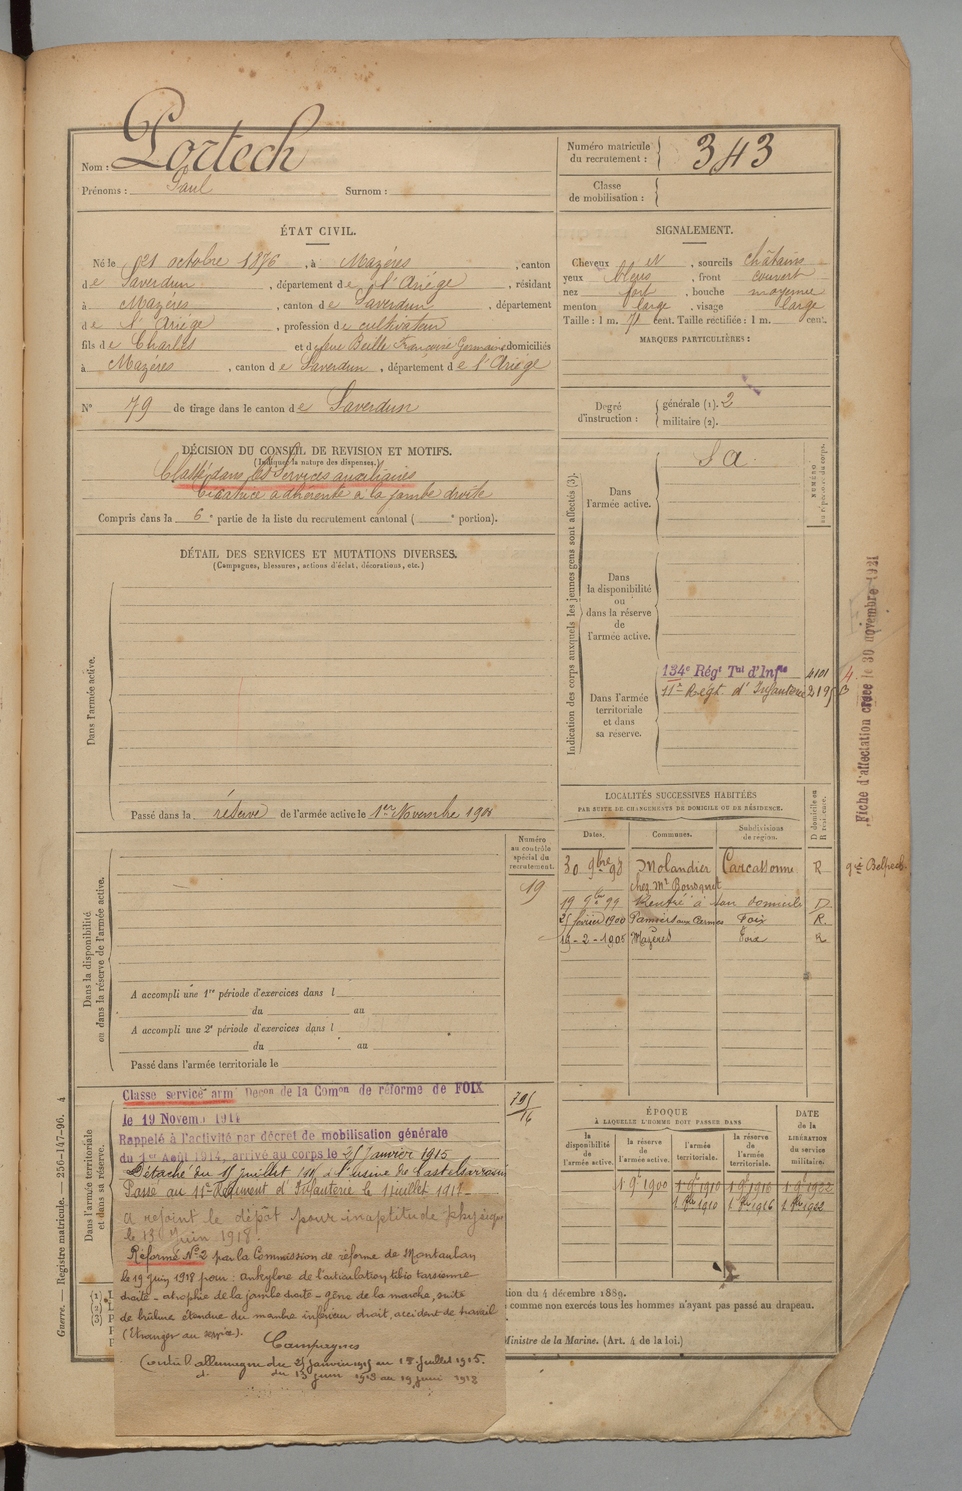 Nom : Portech
Prénoms : Paul Surnom :
Numéro matricule du recrutement : 343
Classe de mobilisation :
ÉTAT CIVIL.
Né le 21 octobre 1876, à Mazères, canton
de Saverdun, département de l'Ariège, résidant
à Mazères, canton de Saverdun, département
de l'Ariège, profession de cultivateur
fils de Charles et de feue Beille Françoise Germaine domiciliés
à Mazères, canton de Saverdun, département de l'Ariège
N° 79 de tirage dans le canton de Saverdun
SIGNALEMENT.
Cheveux et, sourcils châtains
yeux bleus, front couvert
nez fort, bouche moyenne
menton large, visage large
Taille : 1 m. 71 cent. Taille rectifiée : 1 m. cent.
MARQUES PARTICULIÈRES :
Degré d'instruction : générale (1). 2
militaire (2).
DÉCISION DU CONSEIL DE REVISION ET MOTIFS.
(Indiquer la nature des dispenses.)
Classé dans les services auxiliaires
Cicatrice adhérente à la jambe droite
Compris dans la 6e partie de la liste du recrutement cantonal ( e portion).
DÉTAIL DES SERVICES ET MUTATIONS DIVERSES.
(Campagnes, blessures, actions d'éclat, décorations, etc.)
Dans l'armée active.
Passé dans la réserve de l'armée active le 1er Novembre 1900
Indication des corps auxquels les jeunes gens sont affectés (3).
NUMÉRO au répertoire du corps.
Dans l'armée active. S A
Dans la disponibilité ou dans la réserve de l'armée active.
Dans l'armée territoriale et dans sa réserve.
134e Régt Tal d'Infie
11e Regt d'Infanterie
Fiche d'affectation créée le 30 novembre 1921
LOCALITÉS SUCCESSIVES HABITÉES
PAR SUITE DE CHANGEMENTS DE DOMICILE OU DE RÉSIDENCE.
Dates. Communes. Subdivisions de région. D domicile ou R résidence.
30 9bre 98 Molandier Carcassonne R
chez Mr Bousquet
19 9bre 99 Rentré à son domicile D
25 février 1900 Pamiers Foix R
19-2-1905 Mazères Foix R
Numéro au contrôle spécial du recrutement.
19
Dans la disponibilité ou dans la réserve de l'armée active.
A accompli une 1re période d'exercices dans l
du au
A accompli une 2e période d'exercices dans l
du au
Passé dans l'armée territoriale le
Dans l'armée territoriale et dans sa réserve.
Classé service armé Décon de la Comon de réforme de FOIX
le 19 Novem. 1914
Rappelé à l'activité par décret de mobilisation générale
du 1er Août 1914, arrivé au corps le 25 Janvier 1915
Détaché du 15 juillet 1915 à l'usine de Castelsarrasin
Passé au 11e Régiment d'Infanterie le 1 juillet 1917
A rejoint le dépôt pour inaptitude physique
le 13 Juin 1918.
Réformé N° 2 par la Commission de réforme de Montauban
le 19 juin 1918 pour : ankylose de l'articulation tibio tarsienne
droite - atrophie de la jambe droite - gêne de la marche, suite
de brûlure étendue du membre inférieur droit, accident de travail
(Etranger au service).
Campagnes
Contre l'allemagne du 25 janvier 1915 au 15 juillet 1915.
d° du 13 juin 1918 au 19 juin 1918
ÉPOQUE
À LAQUELLE L'HOMME DOIT PASSER DANS
DATE de la LIBÉRATION du service militaire.
la disponibilité de l'armée active. la réserve de l'armée active. l'armée territoriale. la réserve de l'armée territoriale.
1 9e 1900 1 9e 1910 1 9e 1916 1 9e 1922
1 8bre 1910 1 8bre 1916 1 8bre 1922
tion du 4 décembre 1889.
comme non exercés tous les hommes n'ayant pas passé au drapeau.
Ministre de la Marine. (Art. 4 de la loi.)
Guerre. — Registre matricule. — 256-147-96. 4